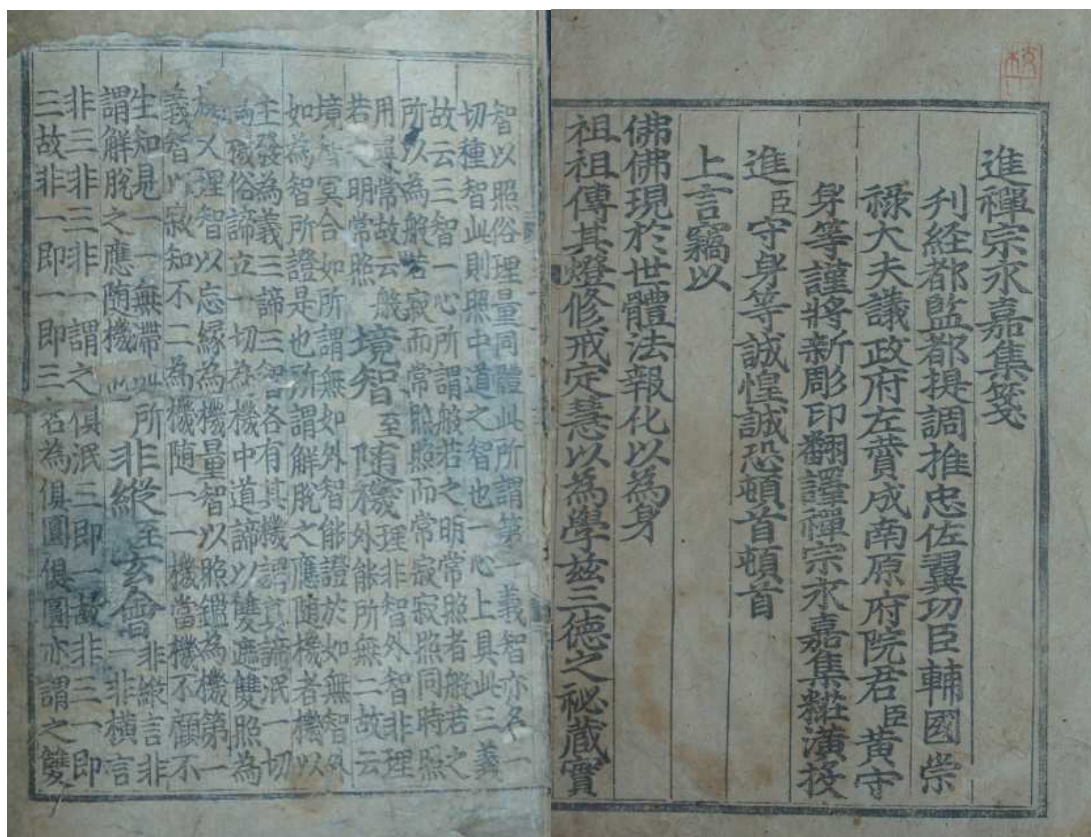 進禪宗永嘉集箋
刋経都監都提調推忠佐翼功臣輔國崇
禄大夫議政府左賛成南原府院君臣黄守
身等謹將新彫印翻譯禪宗永嘉集糚潢投
進臣守身等誠惶誠恐頓首頓首
上言竊以
佛佛現於世體法報化以為身
祖祖傳其燈修戒定慧以為學茲三徳之祕蔵實
智以照俗理量同體此所謂第一義智亦名一
切種智此則照中道之智也一心上具此三義
故云三智一心所謂般若之明常照者般若之
所以為般若寂而常照照而常寂寂照同時照
用真常故云般
若之明常照
境智至随機
理非智外智非理
外能所無二故云
境智冥合如所謂無如外智能證於如無智外
如為智所證是也所謂解脫之應随機者機以
主發為義三諦三智各有其機謂真諦泯一切
俗諦立一切為機中道諦以雙遮雙照為
機又理智以忘縁為機量智以照鑑為機第一
義智以寂知不二為機随一一機當機不顧不
生知見一一無滯所
謂解脫之應随機
非縱至玄會
非縱言非
一非橫言
非三非三非一謂之俱泯三即一故非三一即
三故非一即一即三名為俱圓俱圓亦謂之雙